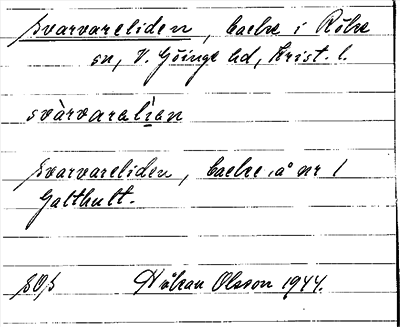 Svarvareliden, backe i Röke
sn, V. Göinge hd, Krist. l.
svàrvaralìən
Svarvareliden, backe å nr 1
Gatthult.
SOS Håkan Olsson 1944.